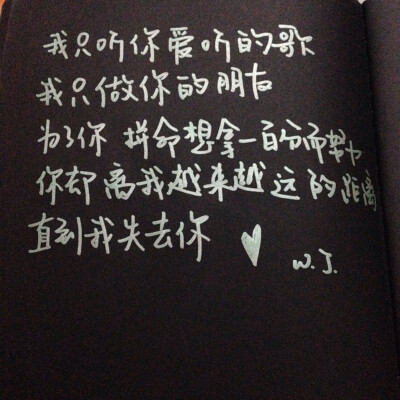 我只听你爱听的歌
我只做你的朋友
为了你 拼命想拿一百分而努力
你却离我越来越远的距离
直到我失去你
W.J.